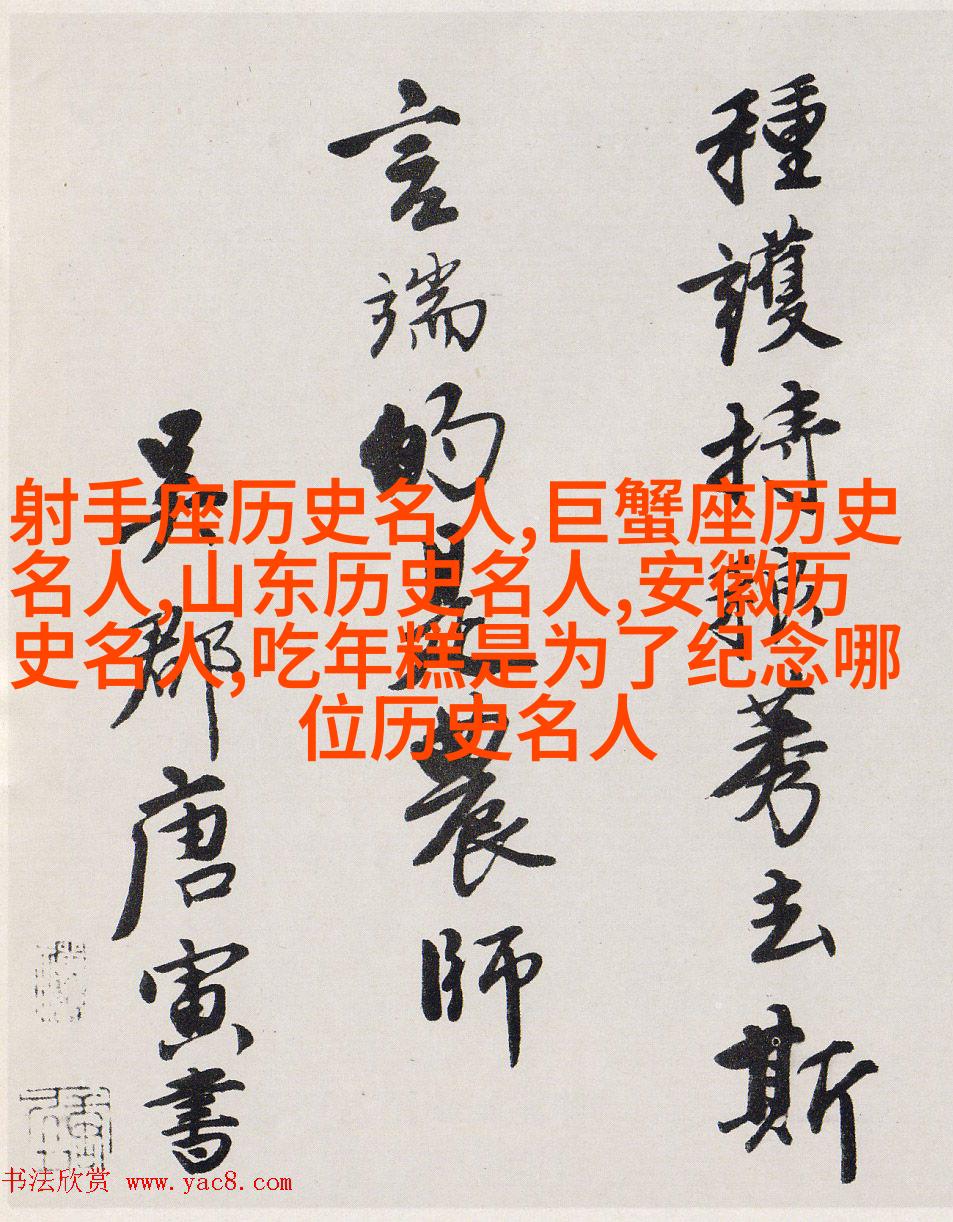 種護持莠去斯
言端的是農師
吳郡唐寅書
射手座历史名人,巨蟹座历史
名人,山东历史名人,安徽历
史名人,吃年糕是为了纪念哪
位历史名人
书法欣赏 www.yac8.com